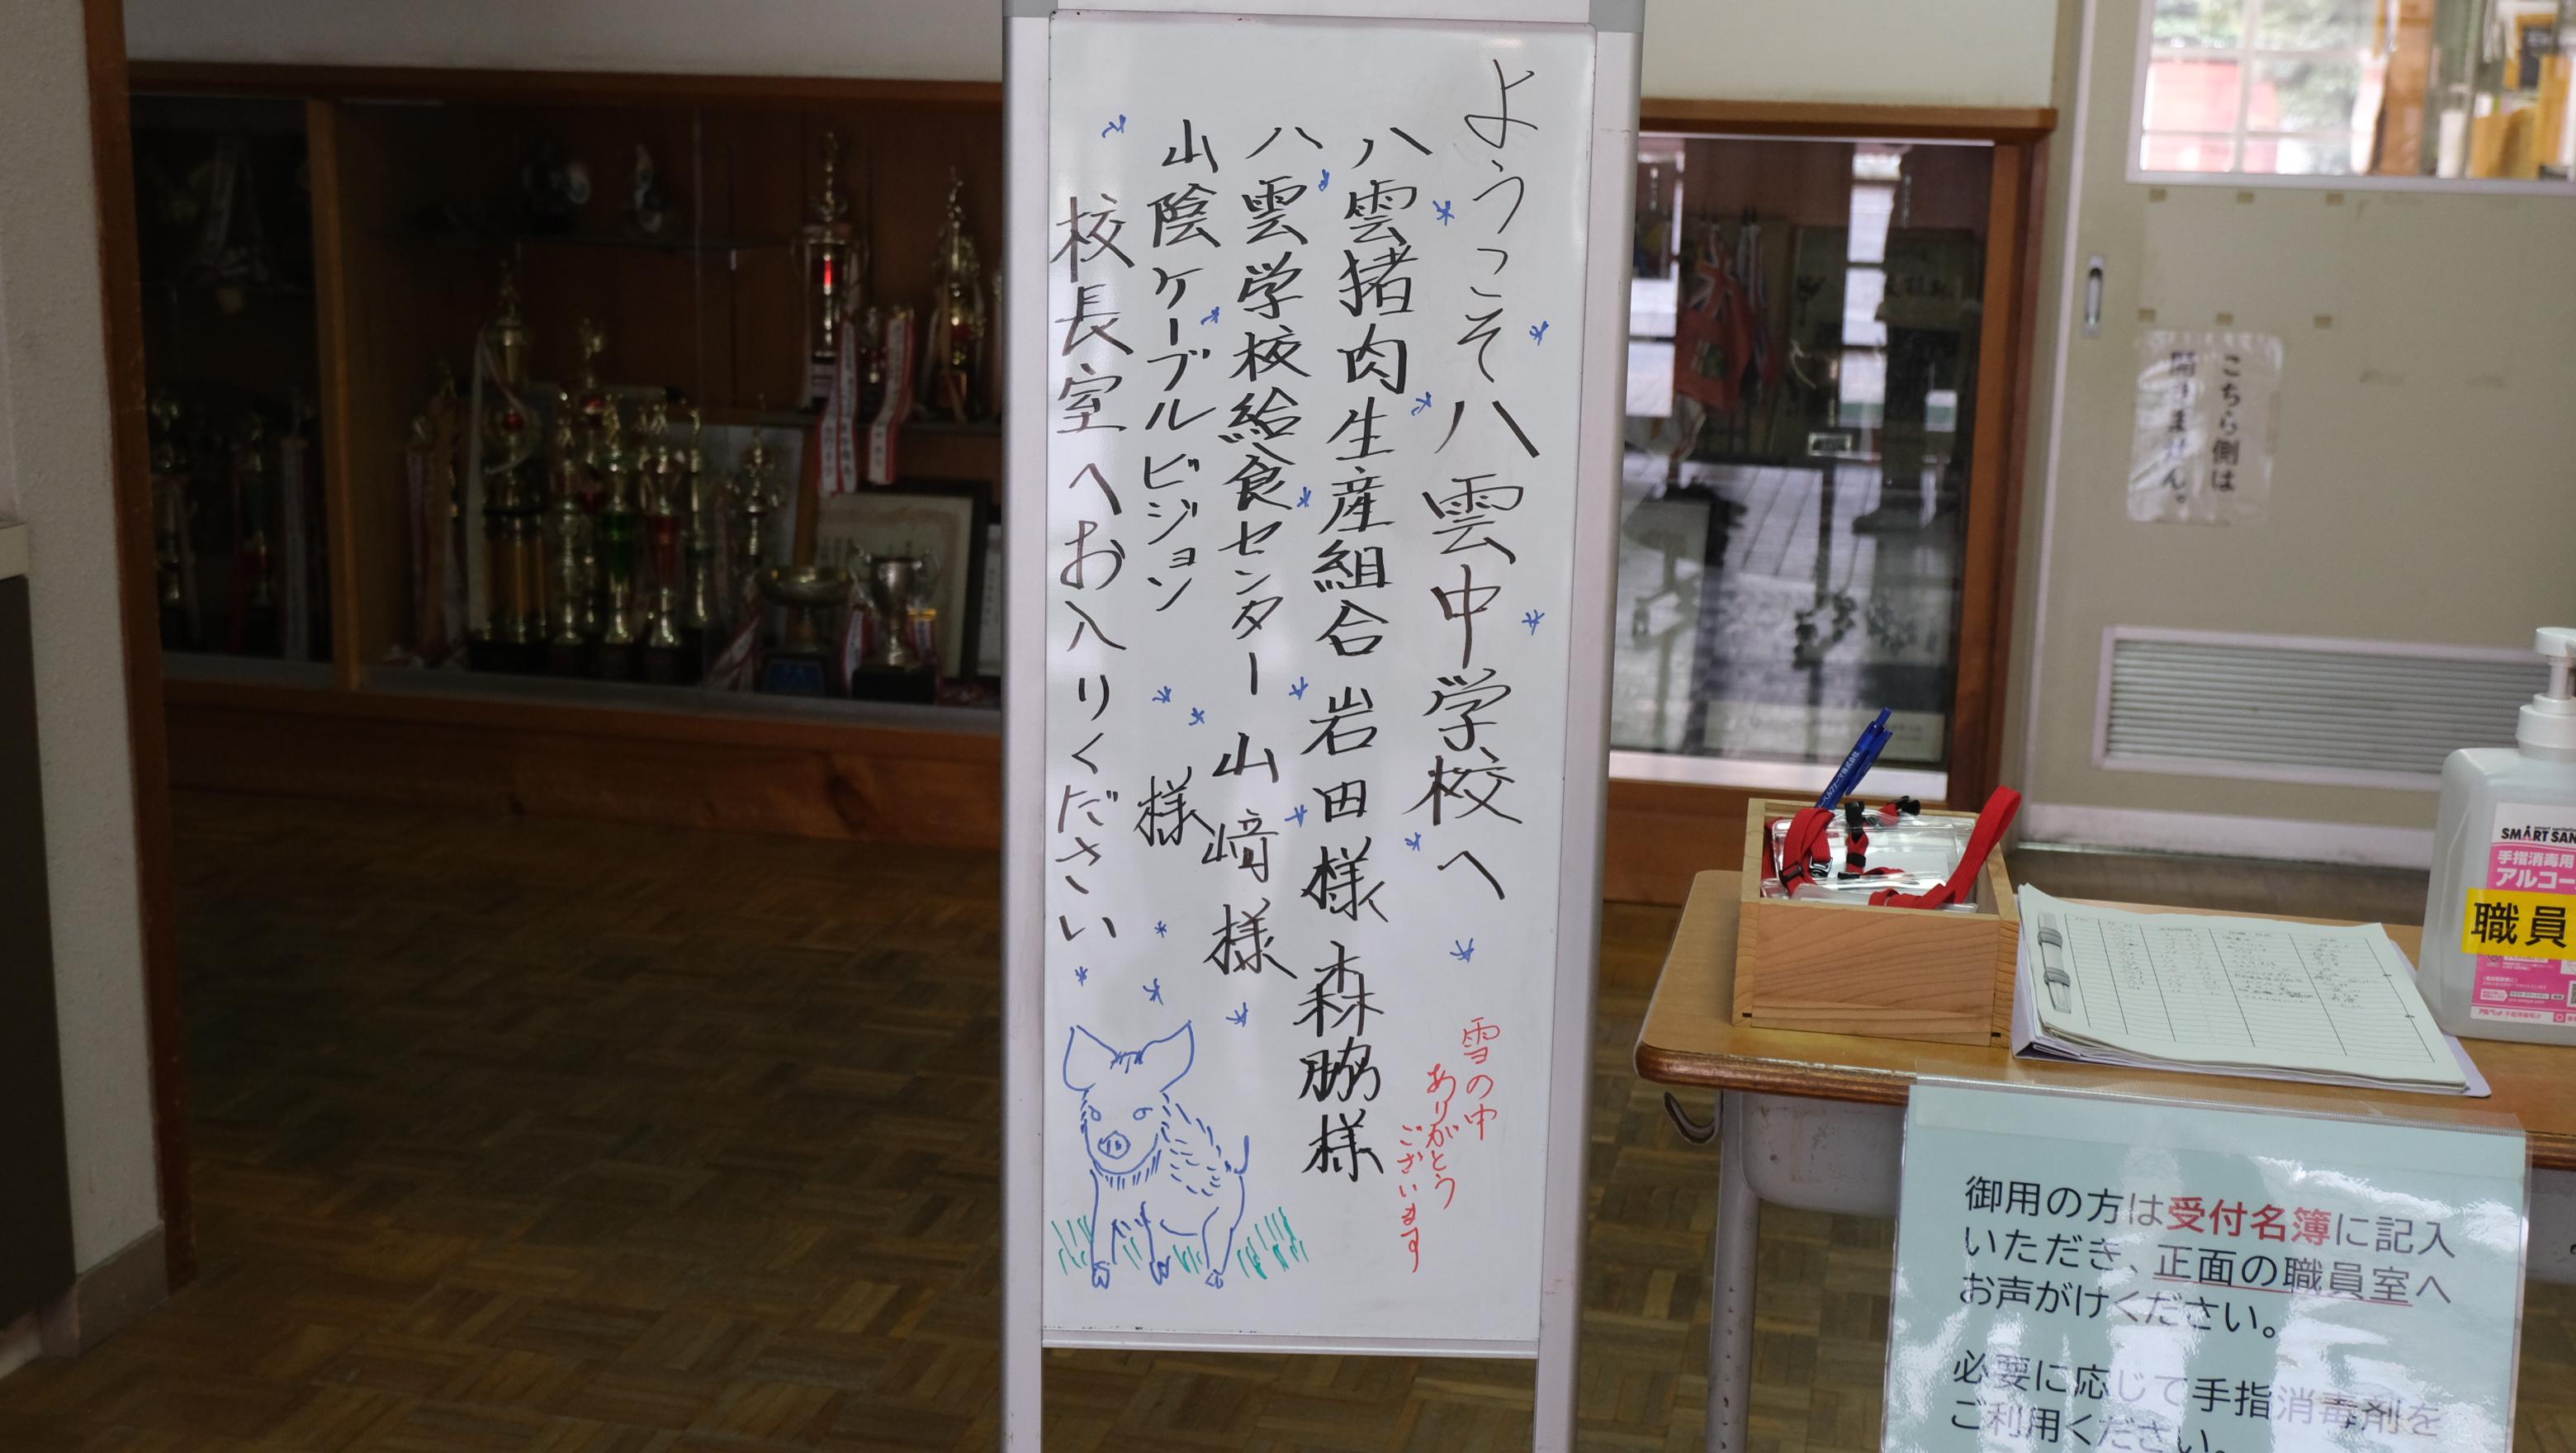 ようこそ八雲中学校へ
八雲猪肉生産組合 岩田様 森脇様
八雲学校給食センター 山﨑様
山陰ケーブルビジョン 様
校長室へお入りください
雪の中
ありがとう
ございます
こちら側は
開きません。
SMART SAN
手指消毒用
アルコー
職員
御用の方は受付名簿に記入
いただき、正面の職員室へ
お声がけください。
必要に応じて手指消毒剤を
ご利用ください。